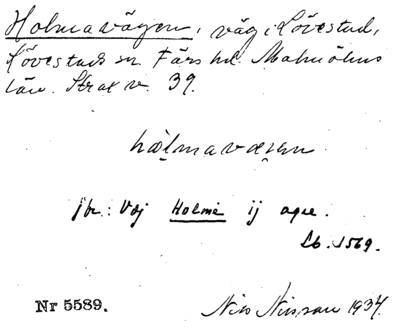 Holmavägen, väg i Lövestad,
Lövestads sn Färs hd. Malmöhus
län. Strax v. 39.
hòlmavæɡen
jfr: Vdj Holme ij agre.
Lb. 1569.
Nr 5589. Nils Nilsson 1934.